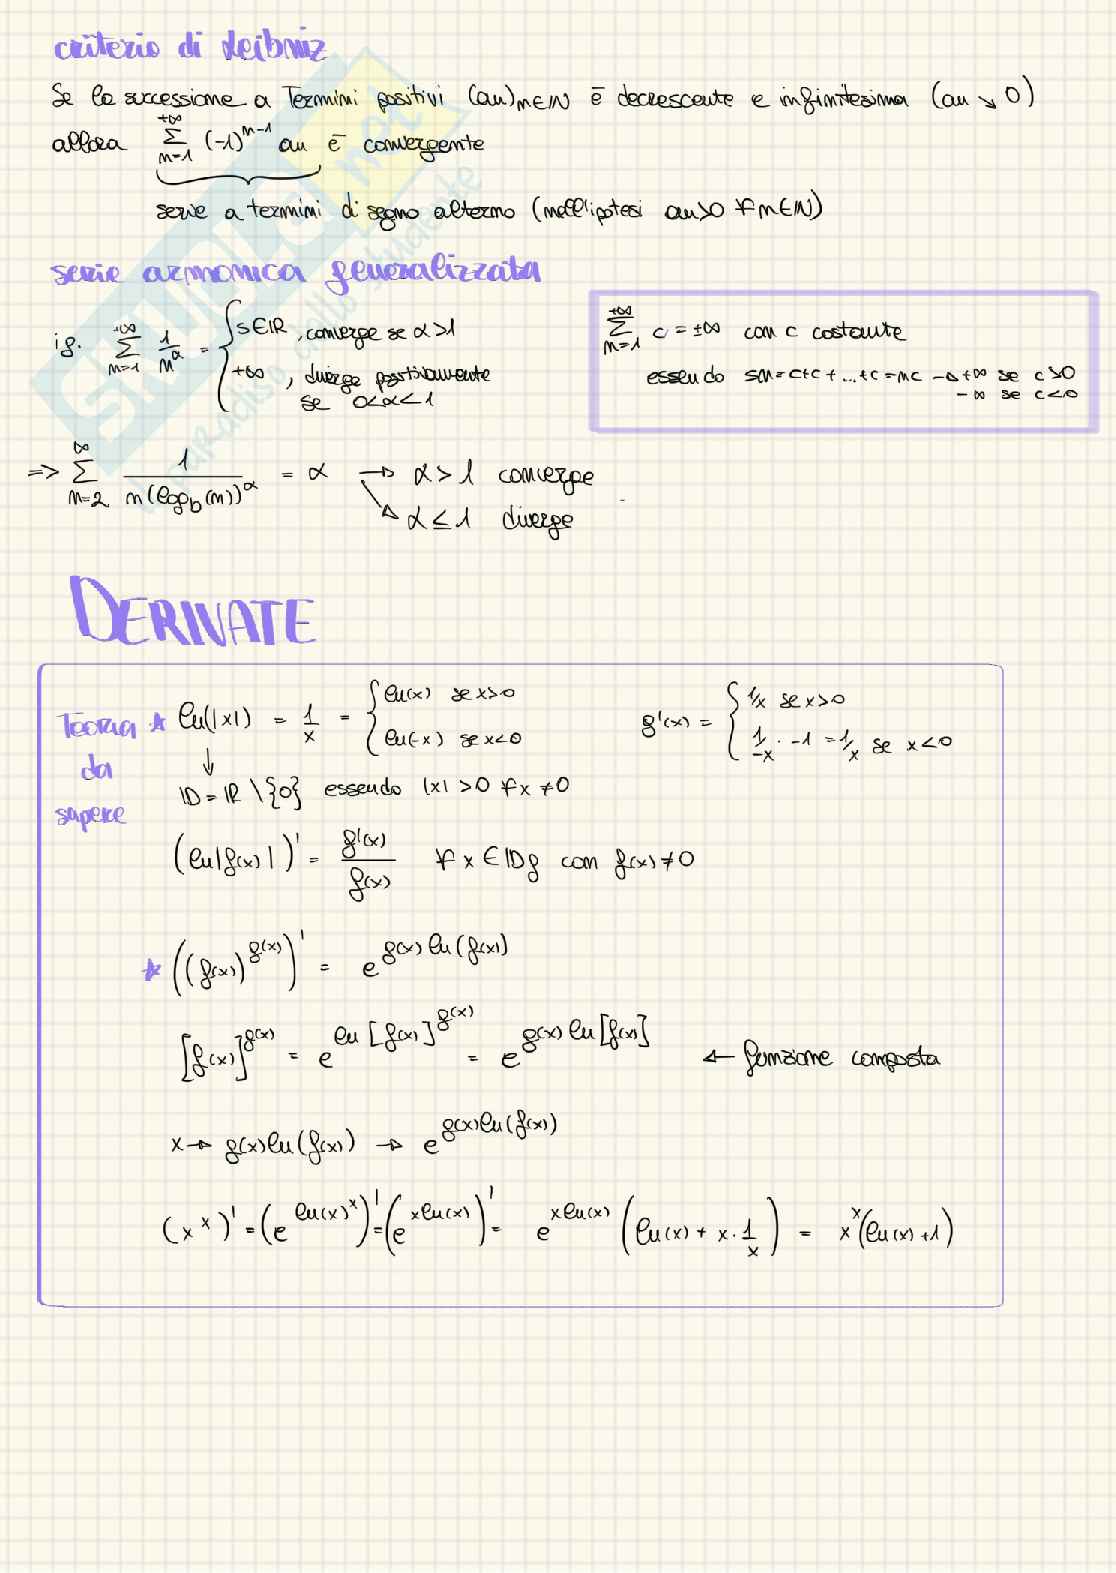 criterio di Leibniz
Se la successione a Termini positivi (an)n∈ℕ è decrescente e infinitesima (an ↘ 0)
allora +∞ Σ n=1 (-1)^(n-1) an è convergente
serie a termini di segno alterno (nell'ipotesi an>0 ∀n∈ℕ)
serie armonica generalizzata
ig. +∞ Σ n=1 1/n^α = { s∈ℝ, converge se α>1
+∞, diverge positivamente
se 0<α<1
+∞ Σ n=1 c = ±∞ con c costante
essendo sn=c+c+...+c=nc → +∞ se c>0
-∞ se c<0
=> ∞ Σ n=2 1/(n(log_b(n))^α) = α → α>1 converge
→ α≤1 diverge
DERIVATE
Teoria da sapere
* ln(|x|) = 1/x = { ln(x) se x>0
ln(-x) se x<0
g'(x) = { 1/x se x>0
1/-x · -1 = 1/x se x<0
↓
𝔻=ℝ\{0} essendo |x|>0 ∀x≠0
(ln|f(x)|)' = g'(x)/f(x) ∀x∈𝔻f con f(x)≠0
* ((f(x))^g(x))' = e^(g(x) ln(f(x)))
[f(x)]^g(x) = e^(ln[f(x)]^g(x)) = e^(g(x) ln[f(x)]) ← funzione composta
x → g(x)ln(f(x)) → e^(g(x)ln(f(x)))
(x^x)' = (e^(ln(x)^x))' = (e^(xln(x)))' = e^(xln(x)) (ln(x) + x · 1/x) = x^x(ln(x)+1)